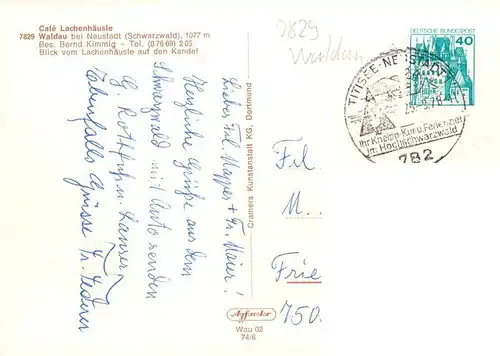 Café Lachenhäusle
7829 Waldau bei Neustadt (Schwarzwald), 1077 m
Bes. Bernd Kimmig - Tel. (07669) 205
Blick vom Lachenhäusle auf den Kandel
7829
Waldau
Herzliche Grüße aus dem
Schwarzwald mit Auto senden
Ebenfalls Grüsse Fr.
Cramers Kunstanstalt KG, Dortmund
DEUTSCHE BUNDESPOST
40
TITISEE-NEUSTADT
Ihr Kneipp-Kur-u. Ferienziel
im Hochschwarzwald
782
Frl.
M..
Frie
750.
Agfacolor
Wau 02
74/6